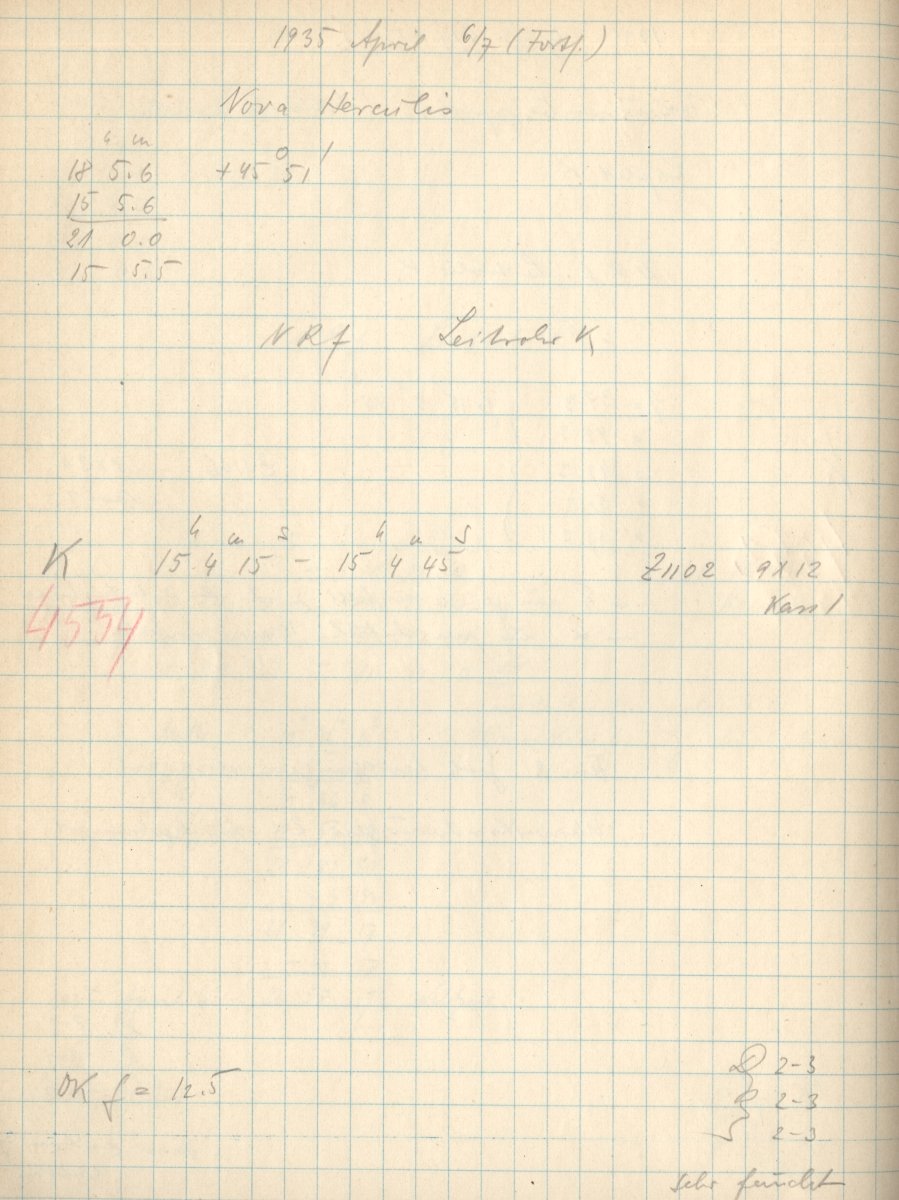 1935 April 6/7 (Forts.)
Nova Herculis
h m
18 5.6 +45° 51'
15 5.6
21 0.0
15 5.5
NRf Leitrohr K
h m s h m s
K 15 4 15 - 15 4 45 Z1102 9x12
4554 Kass 1
2-3
OK f = 12.5 2-3
S 2-3
sehr feucht